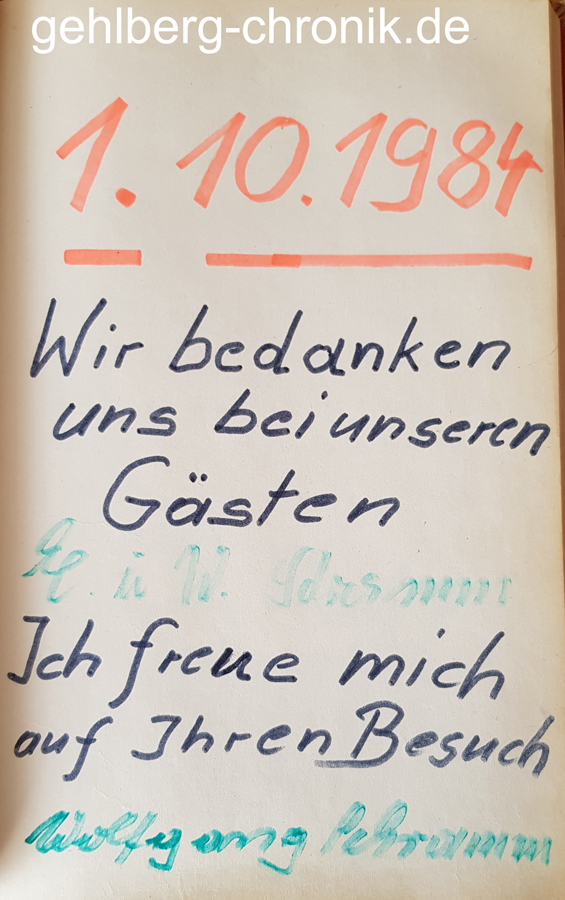 gehlberg-chronik.de
1. 10.1984
Wir bedanken
uns bei unseren
Gästen
u W. Schramm
Ich freue mich
auf Ihren Besuch
Wolfgang Schramm